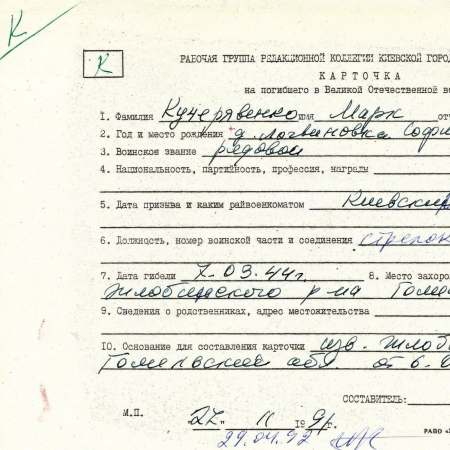 К
К
РАБОЧАЯ ГРУППА РЕДАКЦИОННОЙ КОЛЛЕГИИ КИЕВСКОЙ ГОРОД
КАРТОЧКА
на погибшего в Великой Отечественной во
1. Фамилия Кучерявенко имя Марк отч
2. Год и место рождения д. Логвиновка Софи
3. Воинское звание рядовой
4. Национальность, партийность, профессия, награды
5. Дата призыва и каким райвоенкоматом Киевски
6. Должность, номер воинской части и соединения стрелок
7. Дата гибели 7-03.44г. 8. Место захоро
Жлобинского р-на Гоме
9. Сведения о родственниках, адрес местожительства
10. Основание для составления карточки изв. Жлоб
Гомельской обл. от 6.
СОСТАВИТЕЛЬ:
М.П. 27 " 11 1991г.
29.04.92
РАПО